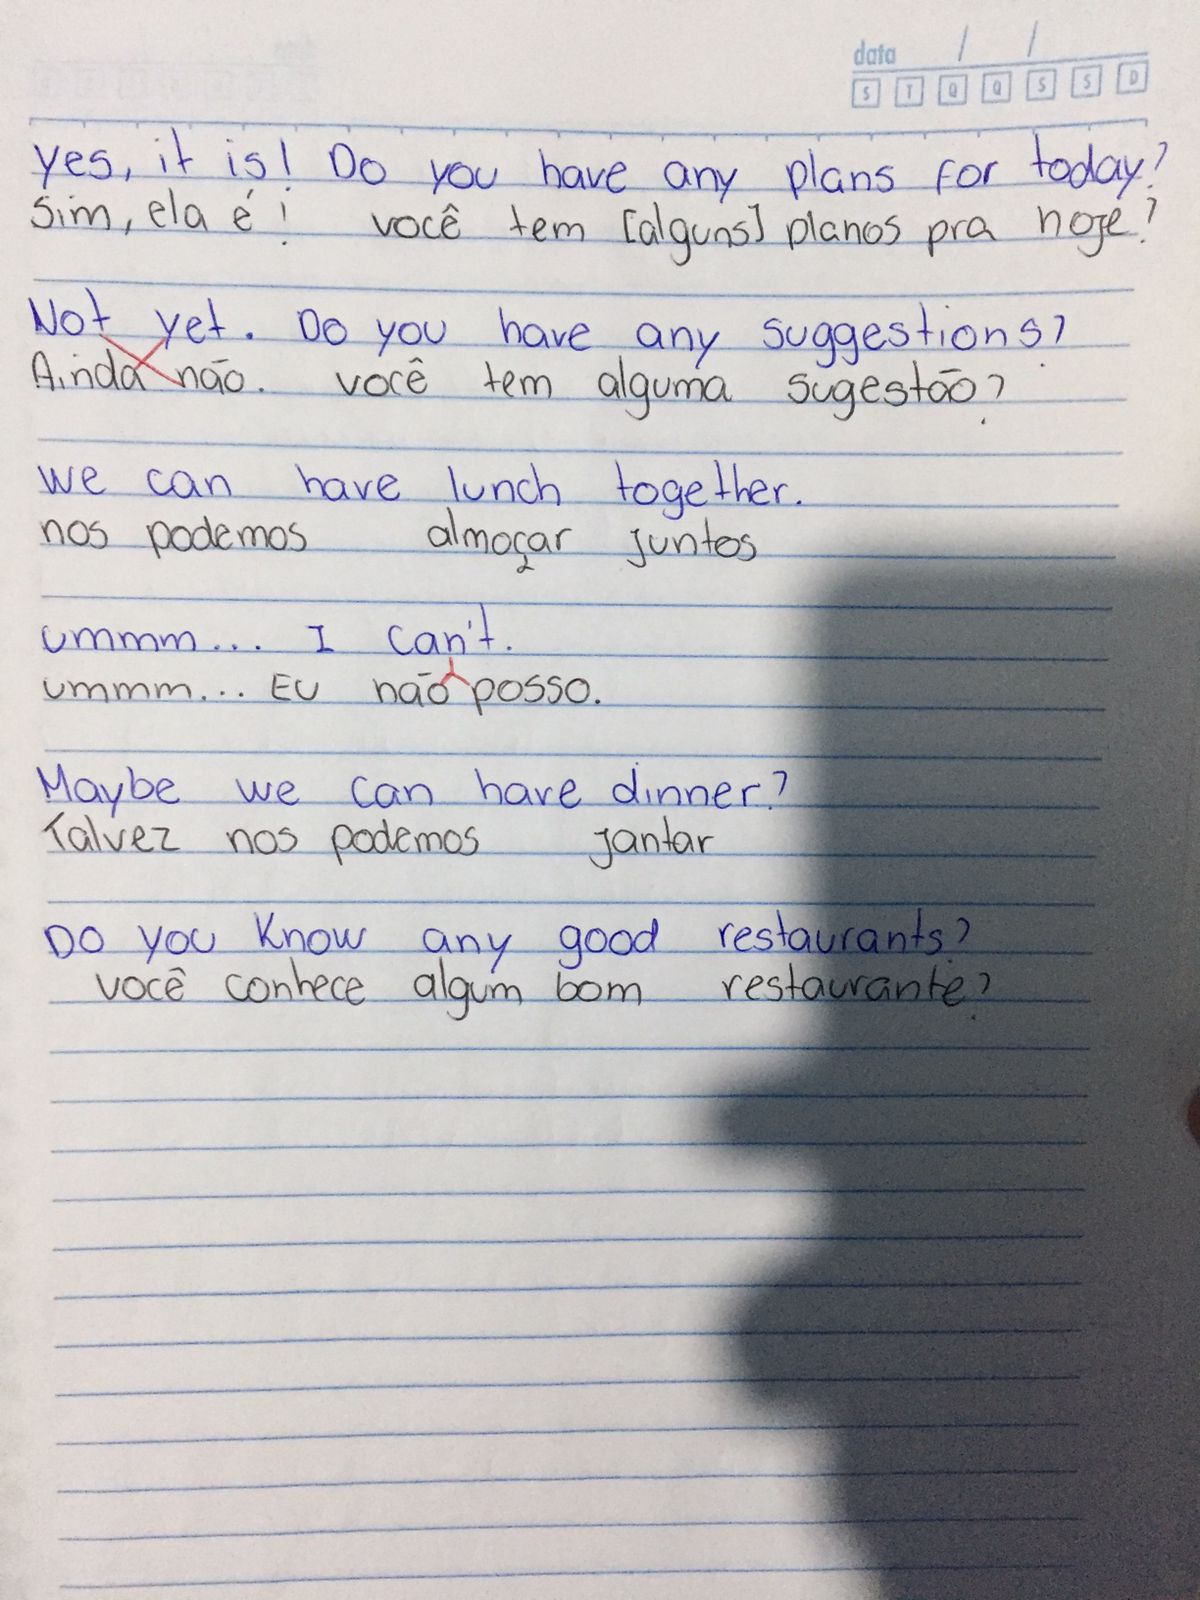 data / /
S T Q Q S S D
Yes, it is! Do you have any plans for today?
Sim, ela é! você tem [alguns] planos pra hoje?
Not yet. Do you have any suggestions?
Ainda não. você tem alguma sugestão?
we can have lunch together.
nos podemos almoçar juntos
ummm... I can't.
ummm... Eu não posso.
Maybe we can have dinner?
Talvez nos podemos jantar
Do you know any good restaurants?
você conhece algum bom restaurante?